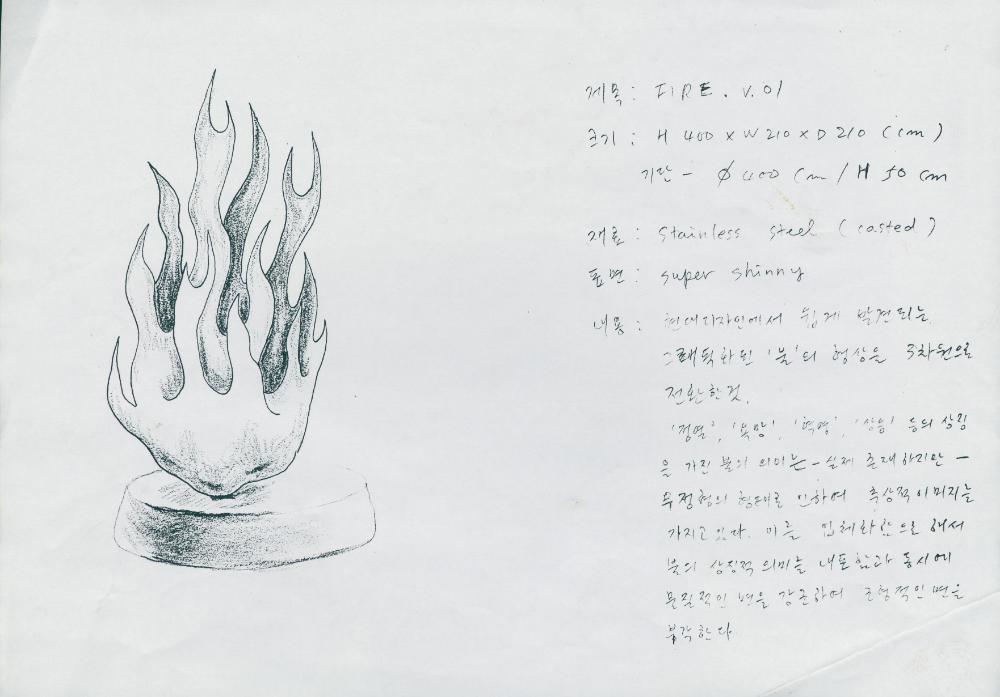 제목 : FIRE. V. 01
크기 : H 400 x W 210 x D 210 (cm)
기단 - ϕ 400 cm / H 50 cm
재료 : Stainless steel (casted)
표면 : super shinny
내용 : 현대디자인에서 쉽게 발견되는
그래픽화된 '불'의 형상을 3차원으로
전환한 것.
'정열', '욕망', '혁명', 등의 상징
을 가진 불의 의미는 - 실제 존재하지만 -
무정형의 형태로 인하여 추상적 이미지를
가지고 있다. 이를 입체화함으로 해서
불의 상징적 의미를 내포함과 동시에
물질적인 면을 강조하여 조형적인 면을
부각한다.